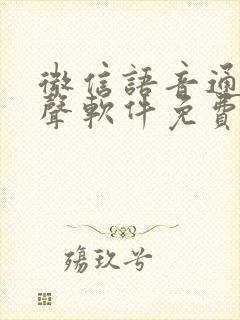 微信語音通
聲軟件免費
殤玖兮